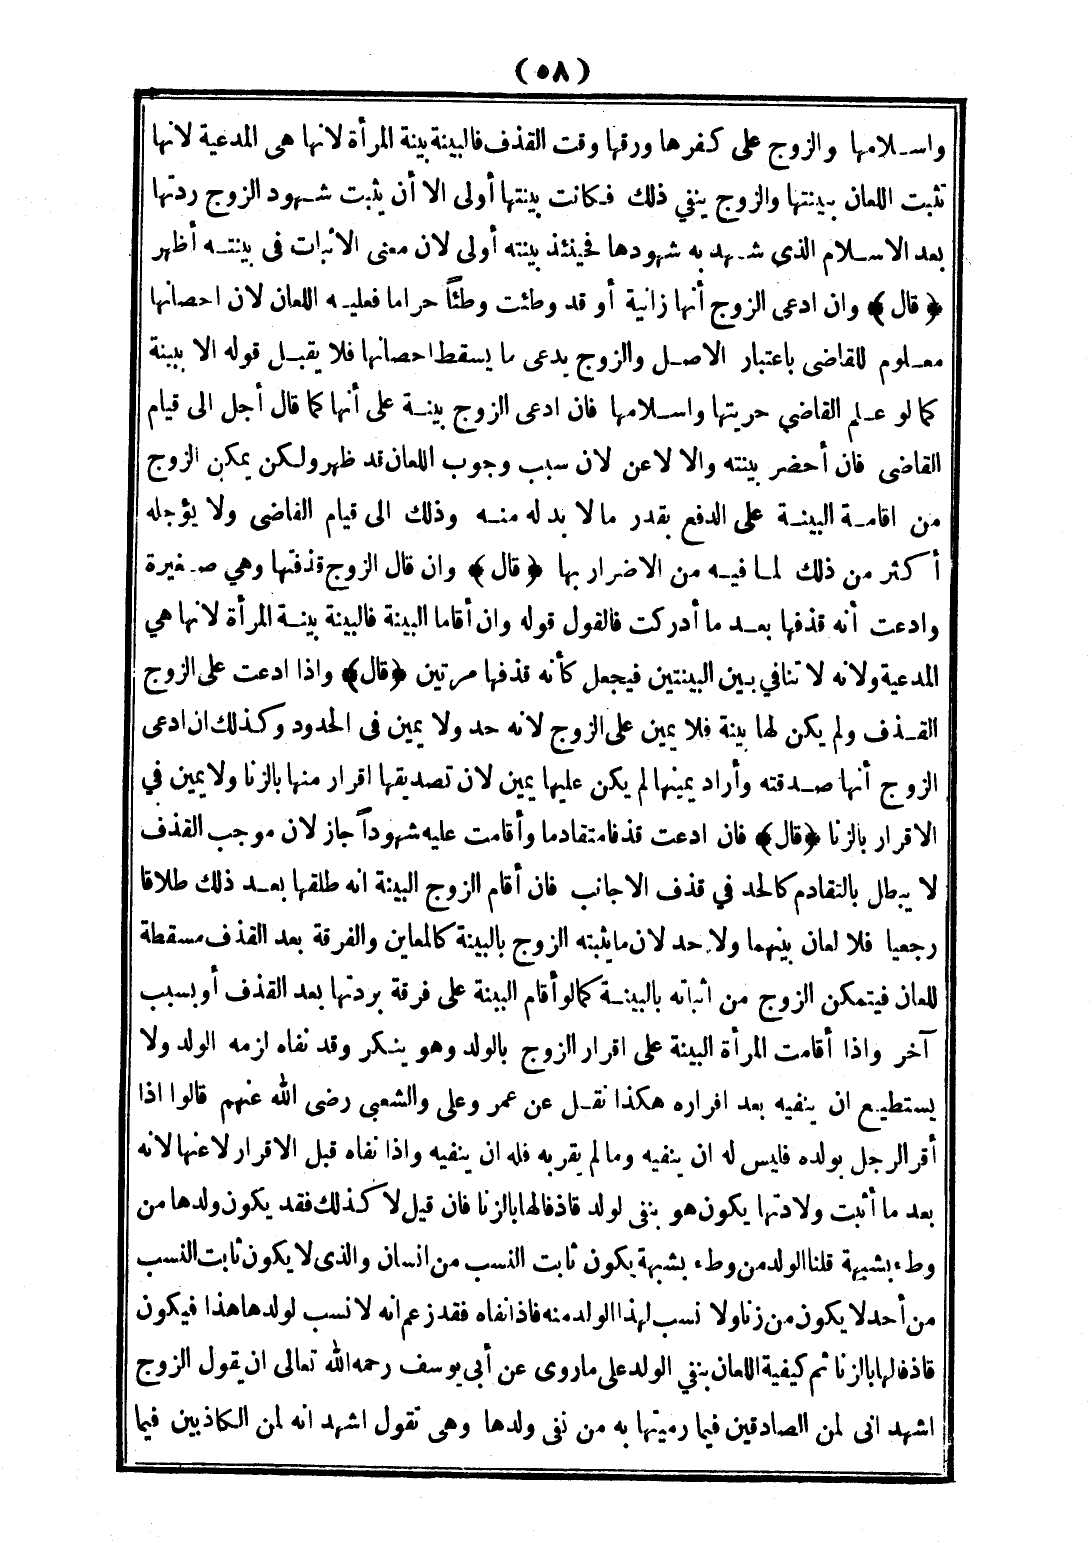 (٥٨)
واسلامها والزوج على كفرها ورقها وقت القذف فالبينة بينة المرأة لانها هى المدعية لانها
تثبت اللعان ببينتها والزوج ينفي ذلك فكانت بينتها أولى الا أن يثبت شهود الزوج ردتها
بعد الاسلام الذي شهد به شهودها فحينئذ بينته أولى لان معنى الاثبات فى بينته أظهر
﴿ قال ﴾ وان ادعى الزوج أنها زانية أو قد وطئت وطئاً حراما فعليه اللعان لان احصانها
معلوم للقاضى باعتبار الاصل والزوج يدعى ما يسقط احصانها فلا يقبل قوله الا ببينة
كما لو علم القاضي حريتها واسلامها فان ادعى الزوج بينة على أنها كما قال أجل الى قيام
القاضى فان أحضر بينته والا لاعن لان سبب وجوب اللعان قد ظهر ولكن يمكن الزوج
من اقامة البينة على الدفع بقدر ما لا بد له منه وذلك الى قيام القاضى ولا يؤجله
أكثر من ذلك لما فيه من الاضرار بها ﴿ قال ﴾ وان قال الزوج قذفتها وهي صغيرة
وادعت أنه قذفها بعد ما أدركت فالقول قوله وان أقاما البينة فالبينة بينة المرأة لانها هي
المدعية ولانه لا تنافي بين البينتين فيجعل كأنه قذفها مرتين ﴿قال﴾ واذا ادعت على الزوج
القذف ولم يكن لها بينة فلا يمين على الزوج لانه حد ولا يمين فى الحدود وكذلك ان ادعى
الزوج أنها صدقته وأراد يمينها لم يكن عليها يمين لان تصديقها اقرار منها بالزنا ولا يمين في
الاقرار بالزنا ﴿قال﴾ فان ادعت قذفا متقادما وأقامت عليه شهوداً جاز لان موجب القذف
لا يبطل بالتقادم كالحد في قذف الاجانب فان أقام الزوج البينة انه طلقها بعد ذلك طلاقا
رجعيا فلا لعان بينهما ولا حد لان ما يثبته الزوج بالبينة كالمعاين والفرقة بعد القذف مسقطة
للعان فيتمكن الزوج من اثباته بالبينة كما لو أقام البينة على فرقة بردتها بعد القذف أو بسبب
آخر واذا أقامت المرأة البينة على اقرار الزوج بالولد وهو ينكر وقد نفاه لزمه الولد ولا
يستطيع ان ينفيه بعد اقراره هكذا نقل عن عمر وعلى والشعبي رضى الله عنهم قالوا اذا
أقر الرجل بولده فليس له ان ينفيه وما لم يقر به فله ان ينفيه واذا نفاه قبل الاقرار لاعنها لانه
بعد ما أثبت ولادتها يكون هو بنفى لولد قاذفا لها بالزنا فان قيل لا كذلك فقد يكون ولدها من
وطء بشبهة قلنا الولد من وطء بشبهة يكون ثابت النسب من انسان والذى لا يكون ثابت النسب
من أحد لا يكون من زنا ولا نسب لهذا الولد منه فاذا نفاه فقد زعم انه لا نسب لولدها هذا فيكون
قاذفا لها بالزنا ثم كيفية اللعان بنفي الولد على ما روى عن أبي يوسف رحمه الله تعالى ان يقول الزوج
اشهد انى لمن الصادقين فيما رميتها به من نفى ولدها وهى تقول اشهد انه لمن الكاذبين فيما